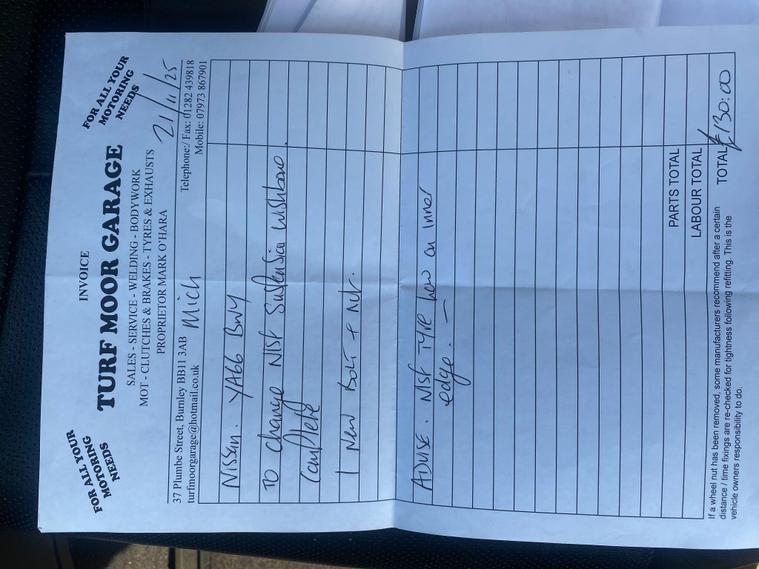 INVOICE
FOR ALL YOUR MOTORING NEEDS
TURF MOOR GARAGE
FOR ALL YOUR MOTORING NEEDS
SALES - SERVICE - WELDING - BODYWORK
MOT - CLUTCHES & BRAKES - TYRES & EXHAUSTS
PROPRIETOR MARK O'HARA
21/11/25
37 Plumbe Street, Burnley BB11 3AB
Telephone:/ Fax: 01282 439818
turfmoorgarage@hotmail.co.uk
Mich
Mobile: 07973 867901
Nissan. YA66 BWY
To change NISF Suspension Wishbone
Complete
1 New Bolt + Nut.
Advise. NISF Tyre low on inner
edge. -
PARTS TOTAL
LABOUR TOTAL
TOTAL £130.00
If a wheel nut has been removed, some manufacturers recommend after a certain
distance / time fixings are re-checked for tightness following refitting. This is the
vehicle owners responsibility to do.